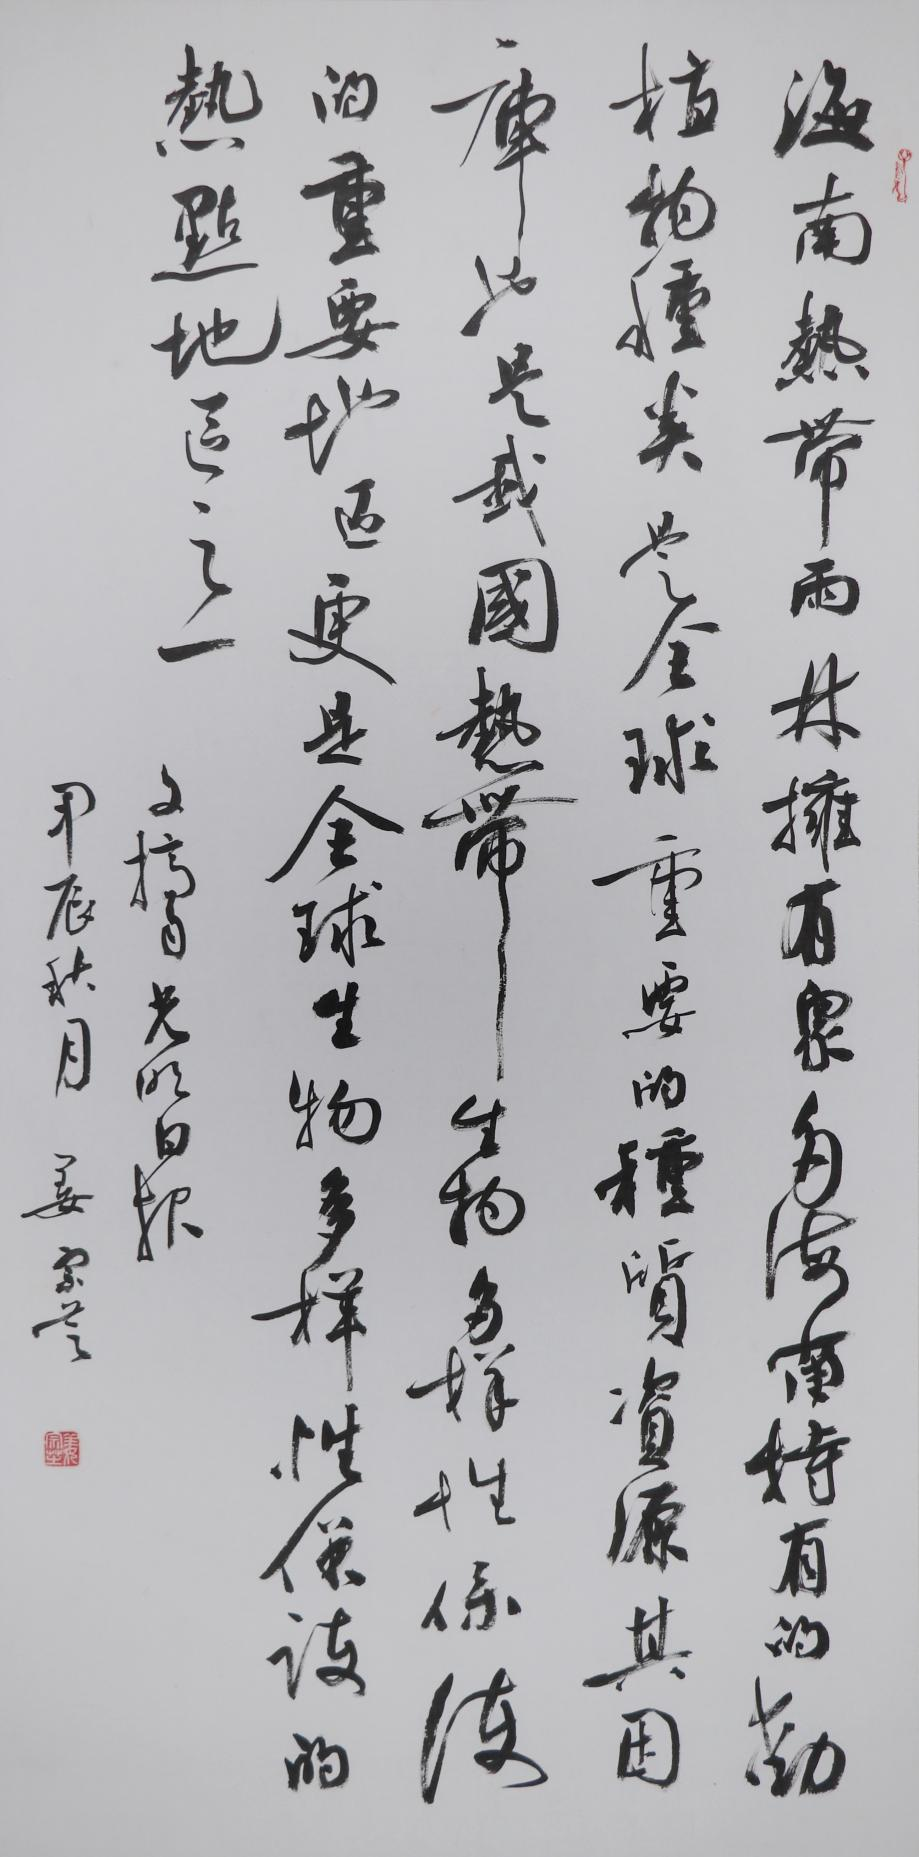 海南熱帶雨林擁有眾多海南特有的動
植物種类是全球重要的種質資源基因
庫也是我國熱帶生物多样性保護
的重要地區更是全球生物多样性保護的
熱點地區之一
文摘自光明日报
甲辰秋月 姜宗芒